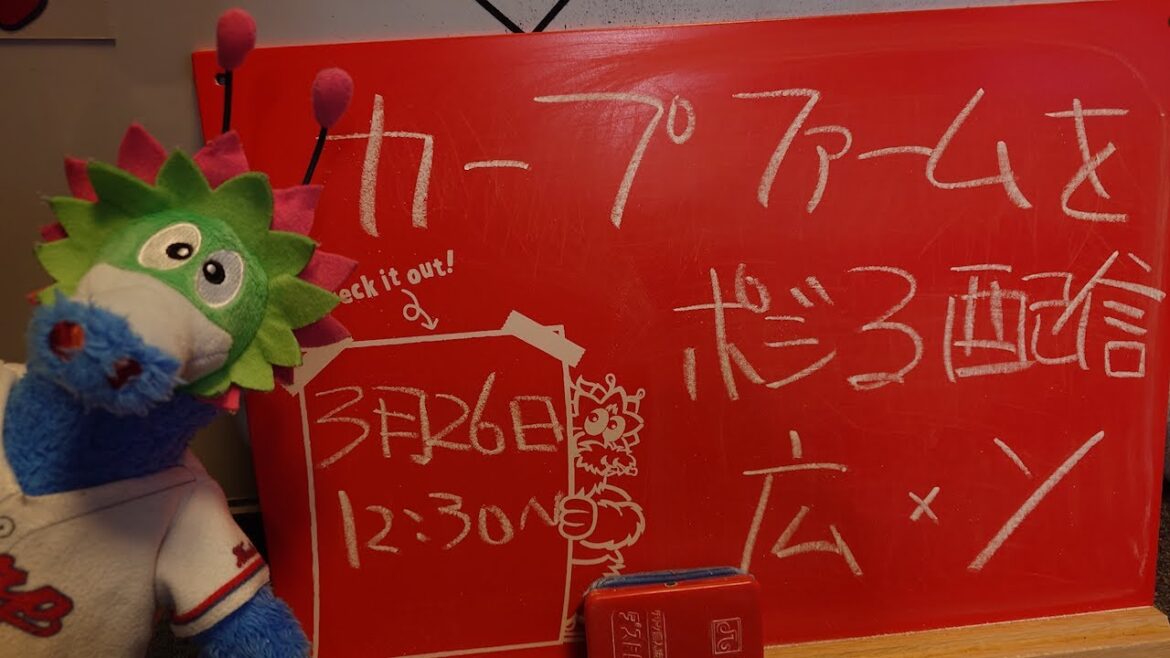 カープファームを
ボジる配信
広×ソ
eck it out!
3月26日
12:30~
JTG